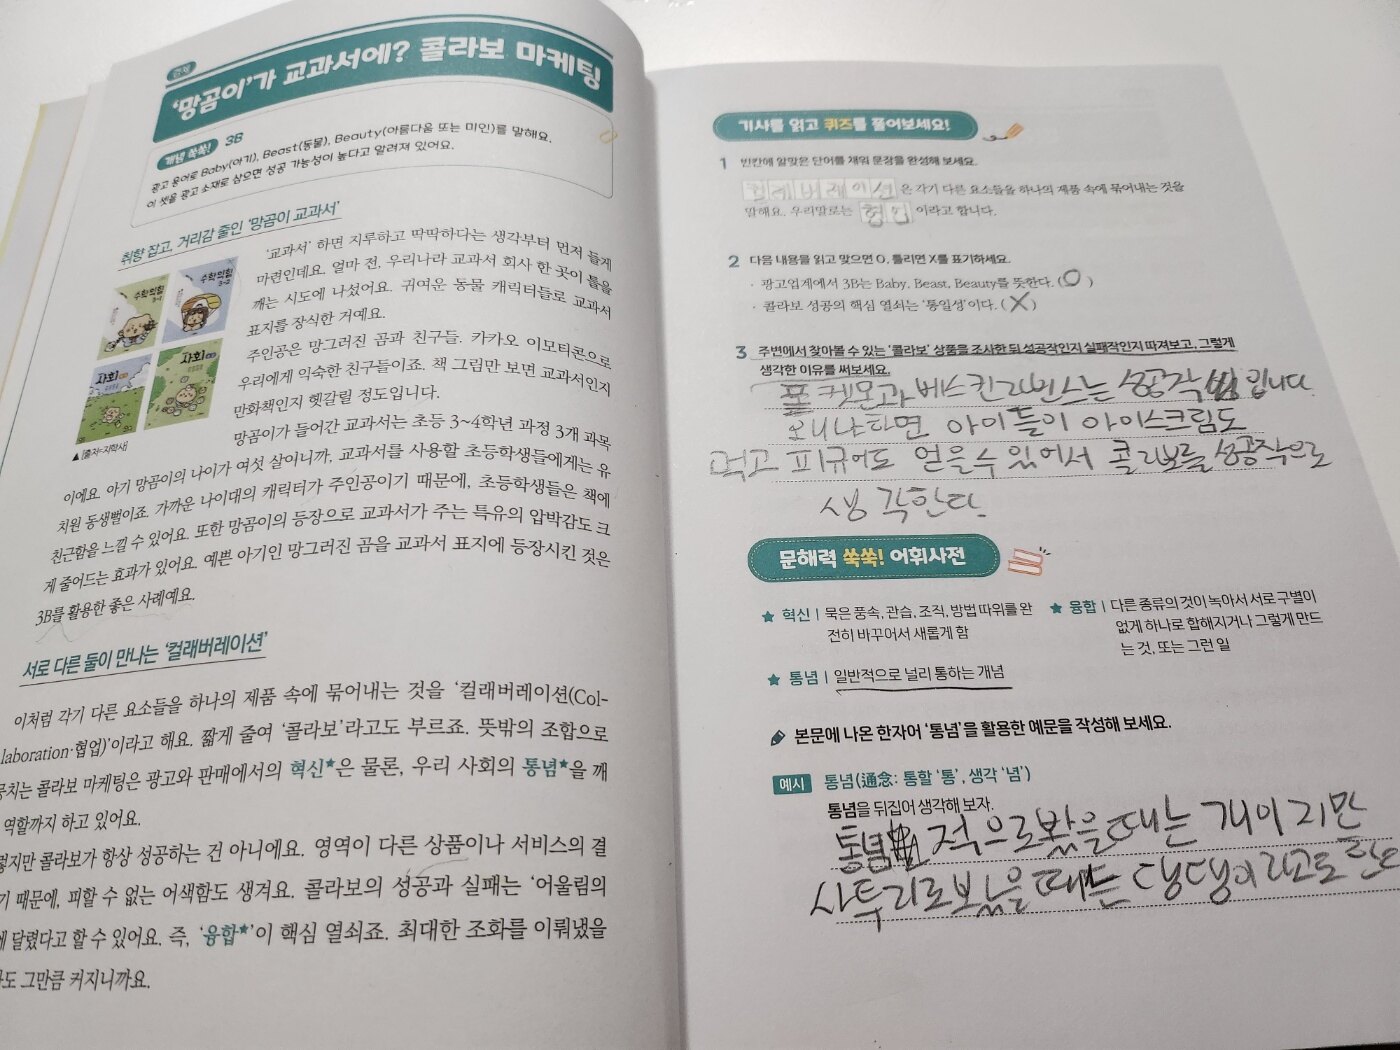 경제
'망곰이'가 교과서에? 콜라보 마케팅
개념 쏙쏙! 3B
광고 용어로 Baby(아기), Beast(동물), Beauty(아름다움 또는 미인)를 말해요.
이 셋을 광고 소재로 삼으면 성공 가능성이 높다고 알려져 있어요.
취향 잡고, 거리감 줄인 '망곰이 교과서'
'교과서' 하면 지루하고 딱딱하다는 생각부터 먼저 들게
마련인데요. 얼마 전, 우리나라 교과서 회사 한 곳이 틀을
깨는 시도에 나섰어요. 귀여운 동물 캐릭터들로 교과서
표지를 장식한 거예요.
주인공은 망그러진 곰과 친구들. 카카오 이모티콘으로
우리에게 익숙한 친구들이죠. 책 그림만 보면 교과서인지
만화책인지 헷갈릴 정도입니다.
망곰이가 들어간 교과서는 초등 3~4학년 과정 3개 과목
이에요. 아기 망곰이의 나이가 여섯 살이니까, 교과서를 사용할 초등학생들에게는 유
치원 동생뻘이죠. 가까운 나이대의 캐릭터가 주인공이기 때문에, 초등학생들은 책에
친근함을 느낄 수 있어요. 또한 망곰이의 등장으로 교과서가 주는 특유의 압박감도 크
게 줄어드는 효과가 있어요. 예쁜 아기인 망그러진 곰을 교과서 표지에 등장시킨 것은
3B를 활용한 좋은 사례예요.
수학익힘
3-1
수학익힘
3-2
사회
사회
▲ [출처=지학사]
서로 다른 둘이 만나는 '컬래버레이션'
이처럼 각기 다른 요소들을 하나의 제품 속에 묶어내는 것을 '컬래버레이션(Col-
laboration·협업)'이라고 해요. 짧게 줄여 '콜라보'라고도 부르죠. 뜻밖의 조합으로
뭉치는 콜라보 마케팅은 광고와 판매에서의 혁신★은 물론, 우리 사회의 통념★을 깨
역할까지 하고 있어요.
렇지만 콜라보가 항상 성공하는 건 아니에요. 영역이 다른 상품이나 서비스의 결
기 때문에, 피할 수 없는 어색함도 생겨요. 콜라보의 성공과 실패는 '어울림의
에 달렸다고 할 수 있어요. 즉, '융합★'이 핵심 열쇠죠. 최대한 조화를 이뤄냈을
과도 그만큼 커지니까요.
기사를 읽고 퀴즈를 풀어보세요!
1 빈칸에 알맞은 단어를 채워 문장을 완성해 보세요.
컬래버레이션 은 각기 다른 요소들을 하나의 제품 속에 묶어내는 것을
말해요. 우리말로는 협업 이라고 합니다.
2 다음 내용을 읽고 맞으면 O, 틀리면 X를 표기하세요.
· 광고업계에서 3B는 Baby, Beast, Beauty를 뜻한다. ( O )
· 콜라보 성공의 핵심 열쇠는 '통일성'이다. ( X )
3 주변에서 찾아볼 수 있는 '콜라보' 상품을 조사한 뒤 성공적인지 실패작인지 따져보고, 그렇게
생각한 이유를 써보세요.
포켓몬과 베스킨라빈스는 성공작 입니다
왜냐하면 아이들이 아이스크림도
먹고 피규어도 얻을수있어서 콜라보를 성공작으로
생각한다.
문해력 쏙쏙! 어휘사전
★ 혁신 | 묵은 풍속, 관습, 조직, 방법 따위를 완
전히 바꾸어서 새롭게 함
★ 융합 | 다른 종류의 것이 녹아서 서로 구별이
없게 하나로 합해지거나 그렇게 만드
는 것, 또는 그런 일
★ 통념 | 일반적으로 널리 통하는 개념
본문에 나온 한자어 '통념'을 활용한 예문을 작성해 보세요.
예시 통념(通念: 통할 '통', 생각 '념')
통념을 뒤집어 생각해 보자.
통념 적으로봤을때는 개이지만
사투리로봤을때는 댕댕이라고도 한